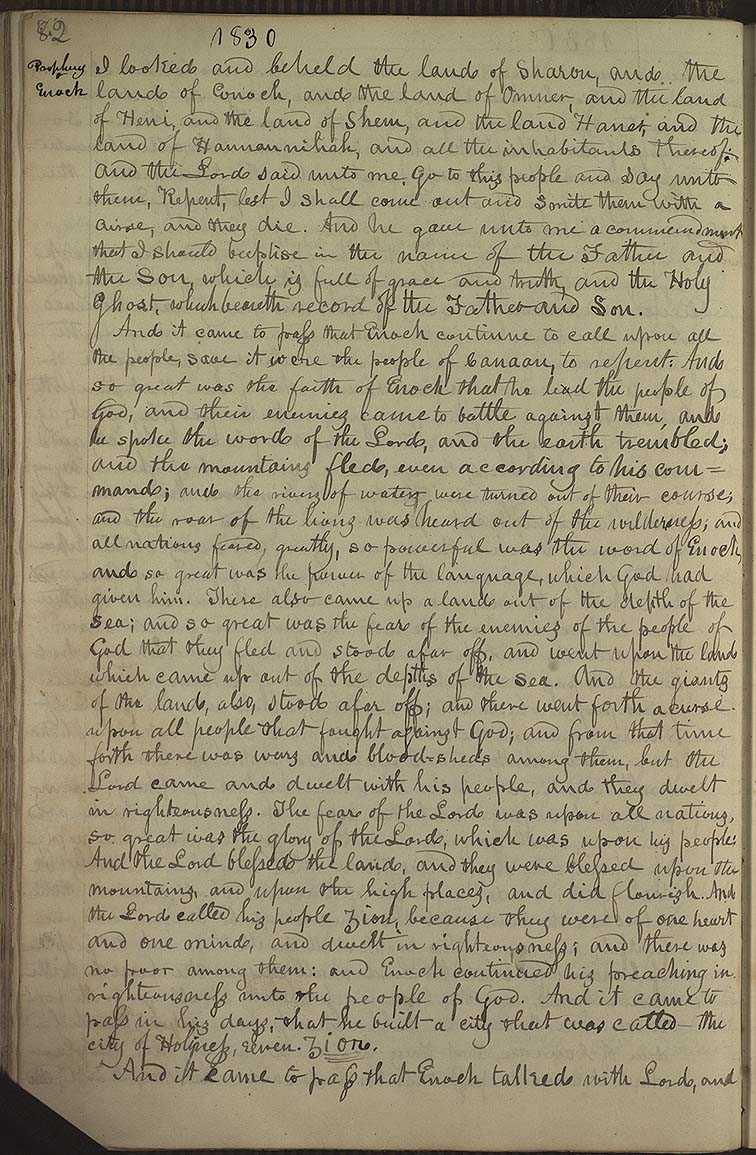 82
1830
Prophecy of Enoch
I looked and beheld the land of Sharon, and the
land of Enoch, and the land of Omner, and the land
of Heni, and the land of Shem, and the land Haner, and the
land of Hannannihah, and all the inhabitants thereof:
and the Lord said unto me, Go to this people and say unto
them, Repent, lest I shall come out and smite them with a
curse, and they die. And he gave unto me a commendment
that I should baptise in the name of the Father and
the Son, which is full of grace and truth, and the Holy
Ghost, which beareth record of the Father and Son.
And it came to pass that Enoch continue to call upon all
the people, save it were the people of Canaan, to repent: And
so great was the faith of Enoch that he lead the people of
God, and their enemies came to battle against them, and
he spoke the words of the Lord, and the earth trembled;
and the mountains fled, even according to his com=
mand; and the rivers of waters were turned out of their course;
and the roar of the lions was heard out of the wilderness; and
all nations feared, greatly, so powerful was the word of Enoch,
and so great was the power of the language, which God had
given him. There also came up a land out of the depth of the
Sea; and so great was the fear of the enemies of the people of
God that they fled and stood afar off, and went upon the land
which came up out of the depths of the Sea. And the giants
of the land, also, stood afar off; and there went forth a curse
upon all people that fought against God; and from that time
forth there was wars and blood-sheds among them, but the
Lord came and dwelt with his people, and they dwelt
in righteousness. The fear of the Lord was upon all nations,
so great was the glory of the Lord, which was upon his people:
And the Lord blessed the land, and they were blessed upon the
mountains, and upon the high places, and did flourish. And
the Lord called his people Zion, because they were of one heart
and one mind, and dwelt in righteousness; and there was
no poor among them: and Enoch continued his preaching in
righteousness unto the people of God. And it came to
pass in his days, that he built a city that was called the
city of Holiness, even Zion.
And it came to pass that Enoch talked with Lord, and